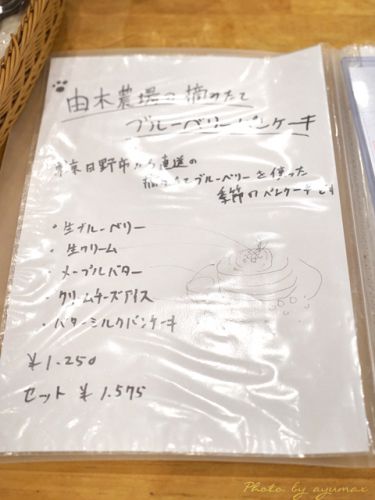 由木農場の摘みたて
ブルーベリーパンケーキ
東京日野市から直送の
摘みたてブルーベリーを使った
季節のパンケーキです
・生ブルーベリー
・生クリーム
・メープルバター
・クリームチーズアイス
・バターミルクパンケーキ
¥1.250
セット ¥1.575
Photo by ayumax